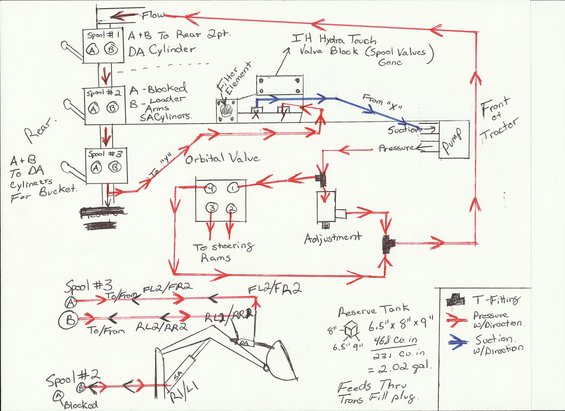 Flow
Spool #1
A B
A+B To Rear 2pt.
DA Cylinder
IH Hydra Touch
Valve Block (Spool Valves)
Gone
Filter
Element
Spool #2
A B
A - Blocked
B - Loader
Arms
SA Cylinders.
X Y
From "X"
Suction
Pressure
Pump
Front of
Tractor
Rear.
Spool #3
A B
A+B
To DA
Cylinders
For Bucket.
To "Y"
Reserve
Orbital Valve
4 1
3 2
To steering
Rams
Adjustment
Spool #3
A
To/From
FL2/FR2
FL2/FR2
B
To/From
RL2/RR2
RL2/RR2
DA
SA
R1/L1
Spool #2
A B
Blocked
Reserve Tank
8"
6.5" 9"
6.5" x 8" x 9"
468 Co in
231 Co. in
= 2.02 gal.
Feeds Thru
Trans Fill plug.
T-Fitting
Pressure
w/Direction.
Suction
w/Direction.